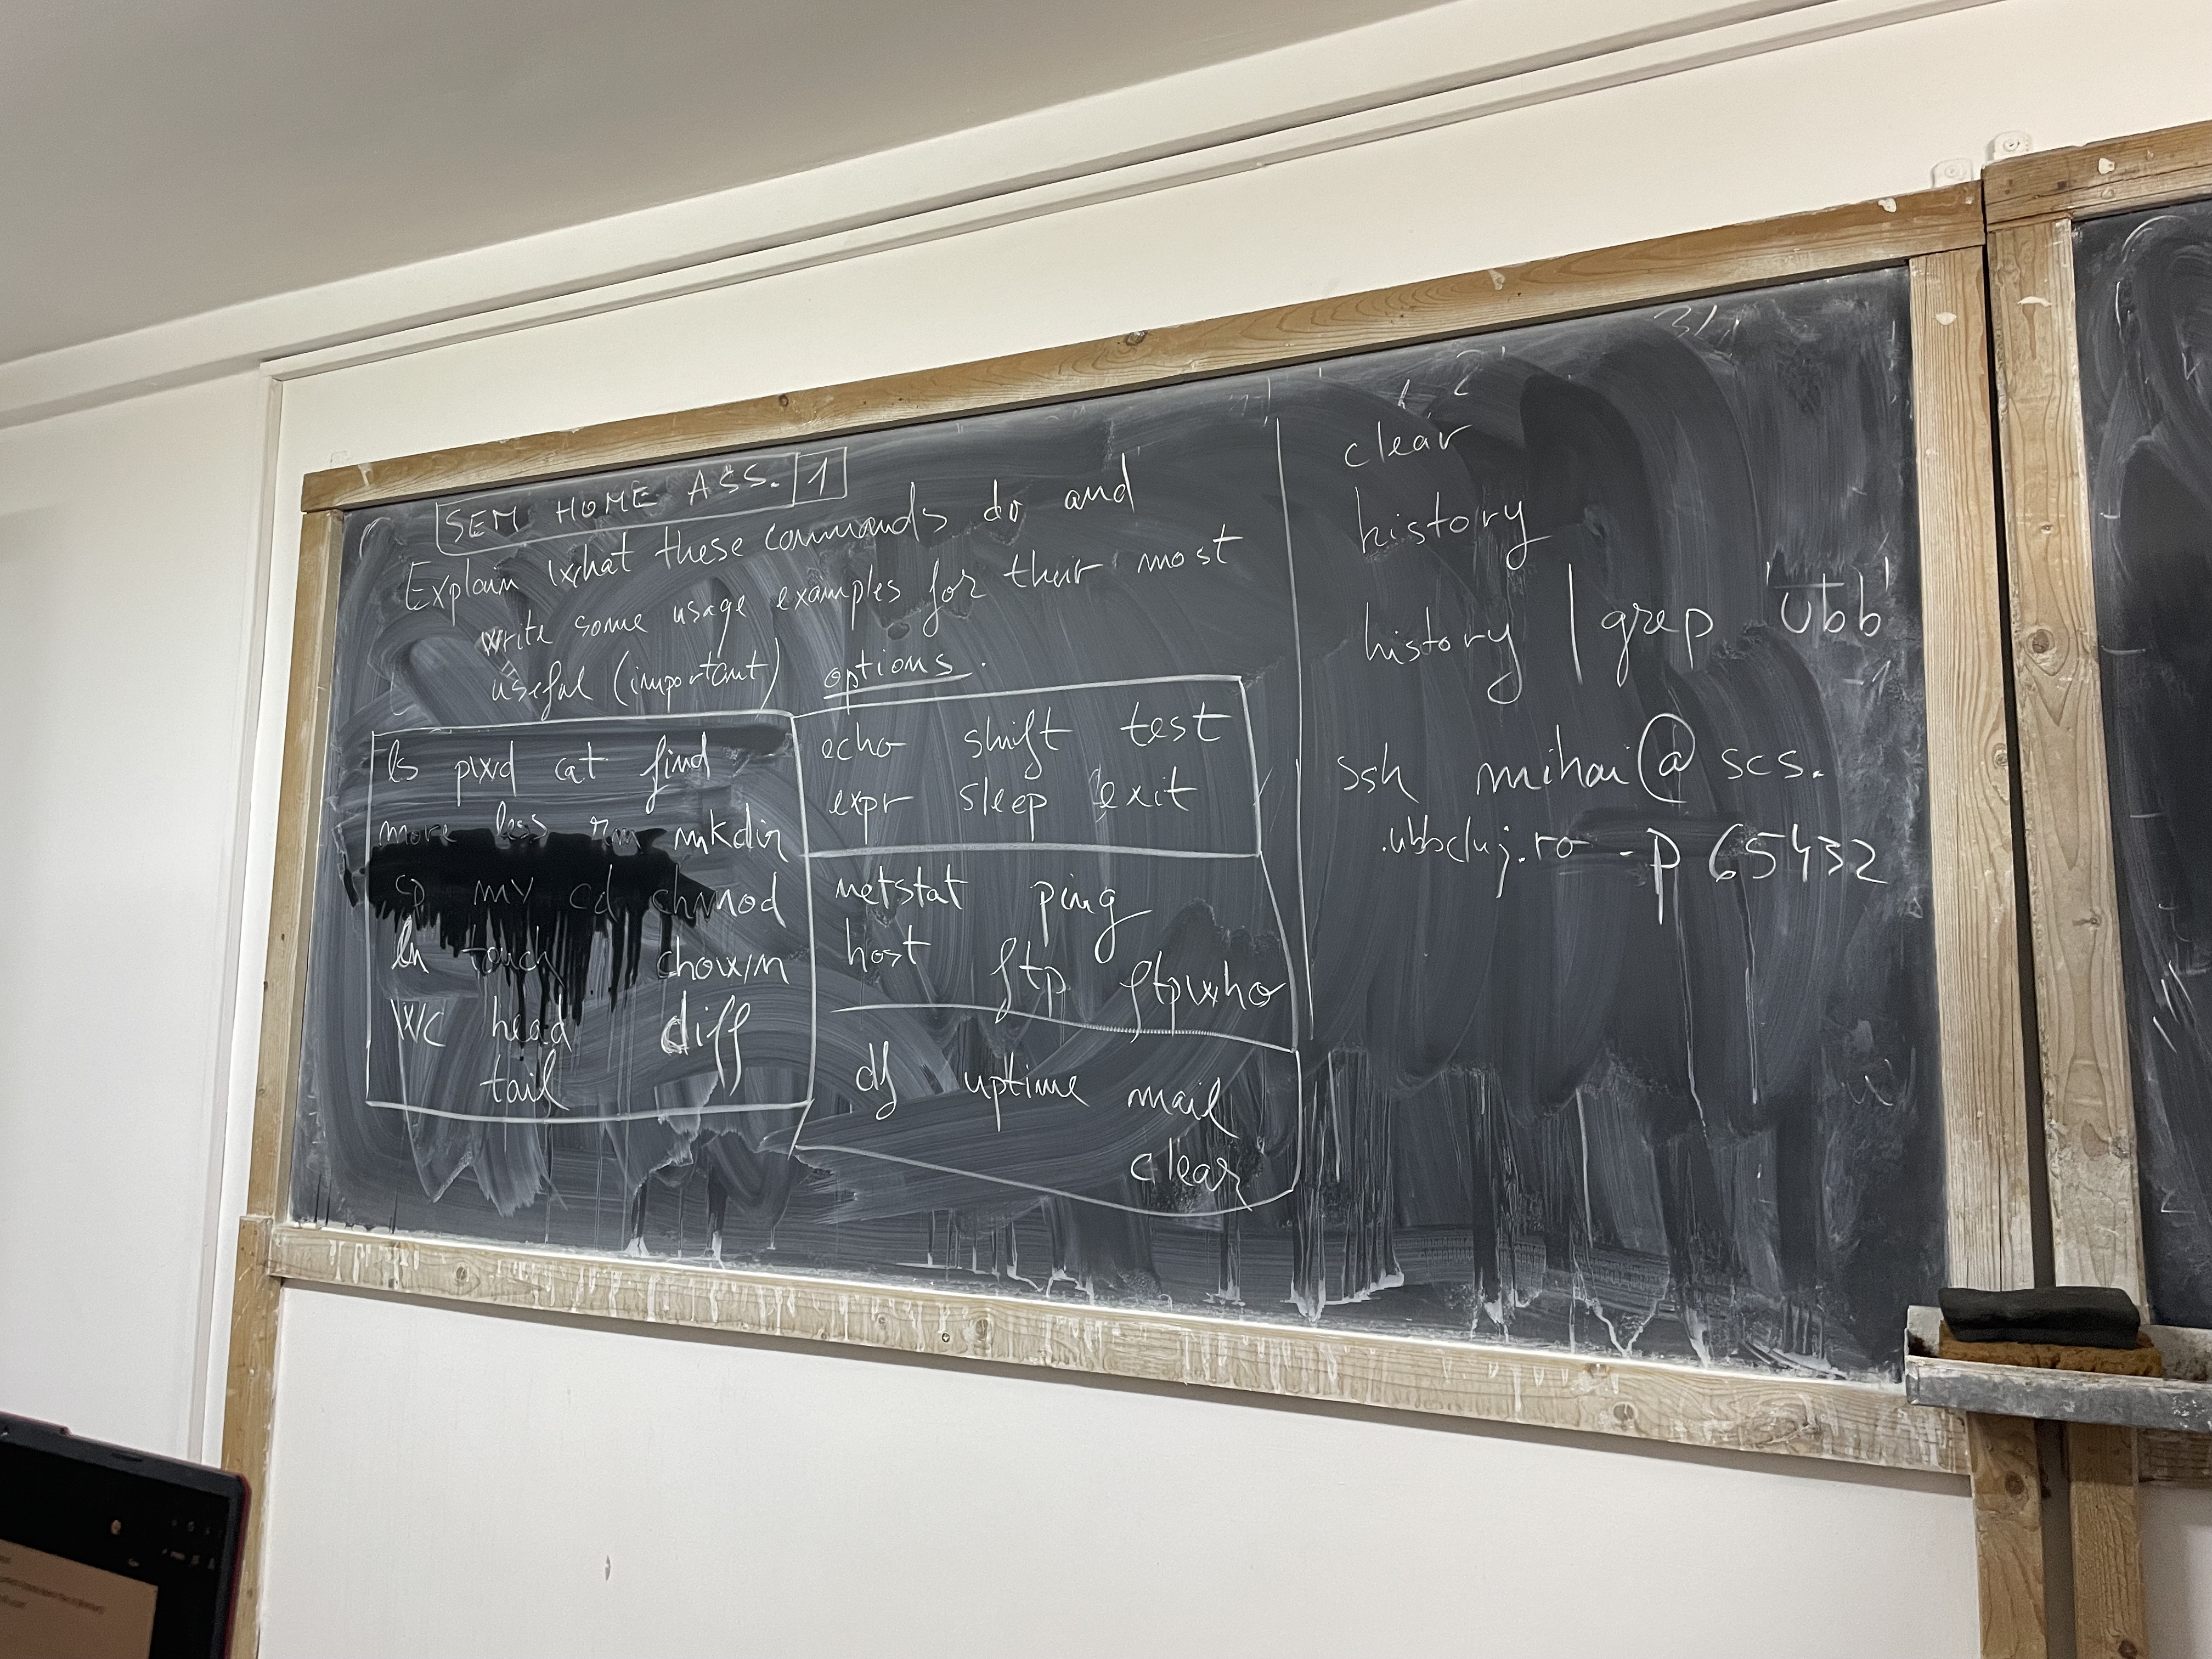 SEM HOME ASS. 1
Explain what these commands do and
write some usage examples for their most
useful (important) options.
ls pwd cat find
more less rm mkdir
cp mv cd chmod
ln touch chown
wc head diff
tail
echo shift test
expr sleep exit
netstat ping
host ftp ftpwho
df uptime mail
clear
clear
history
history | grep 'ubb'
ssh mihai@scs.
.ubbcluj.ro -p 65432